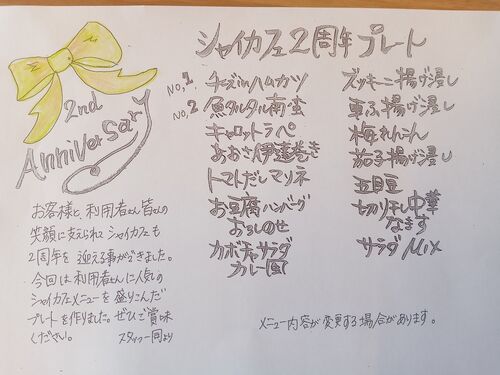 シャイカフェ2周年プレート
2nd
Anniversary
No,1 チーズinハムカツ
No,2 魚タルタル南蛮
キャロットラペ
あおさ伊達巻き
トマトだしマリネ
お豆腐ハンバーグ
おろしのせ
カボチャサラダ
カレー風
ズッキーニ揚げ浸し
車ふ揚げ浸し
梅れんこん
茄子揚げ浸し
五目豆
切りほし中華
なます
サラダMIX
お客様と、利用者さん皆さんの
笑顔に支えられてシャイカフェも
2周年を迎える事ができました。
今回は利用者さんに人気の
シャイカフェメニューを盛りこんだ
プレートを作りました。ぜひご賞味
ください。 スタッフ一同より
メニュー内容が変更する場合があります。